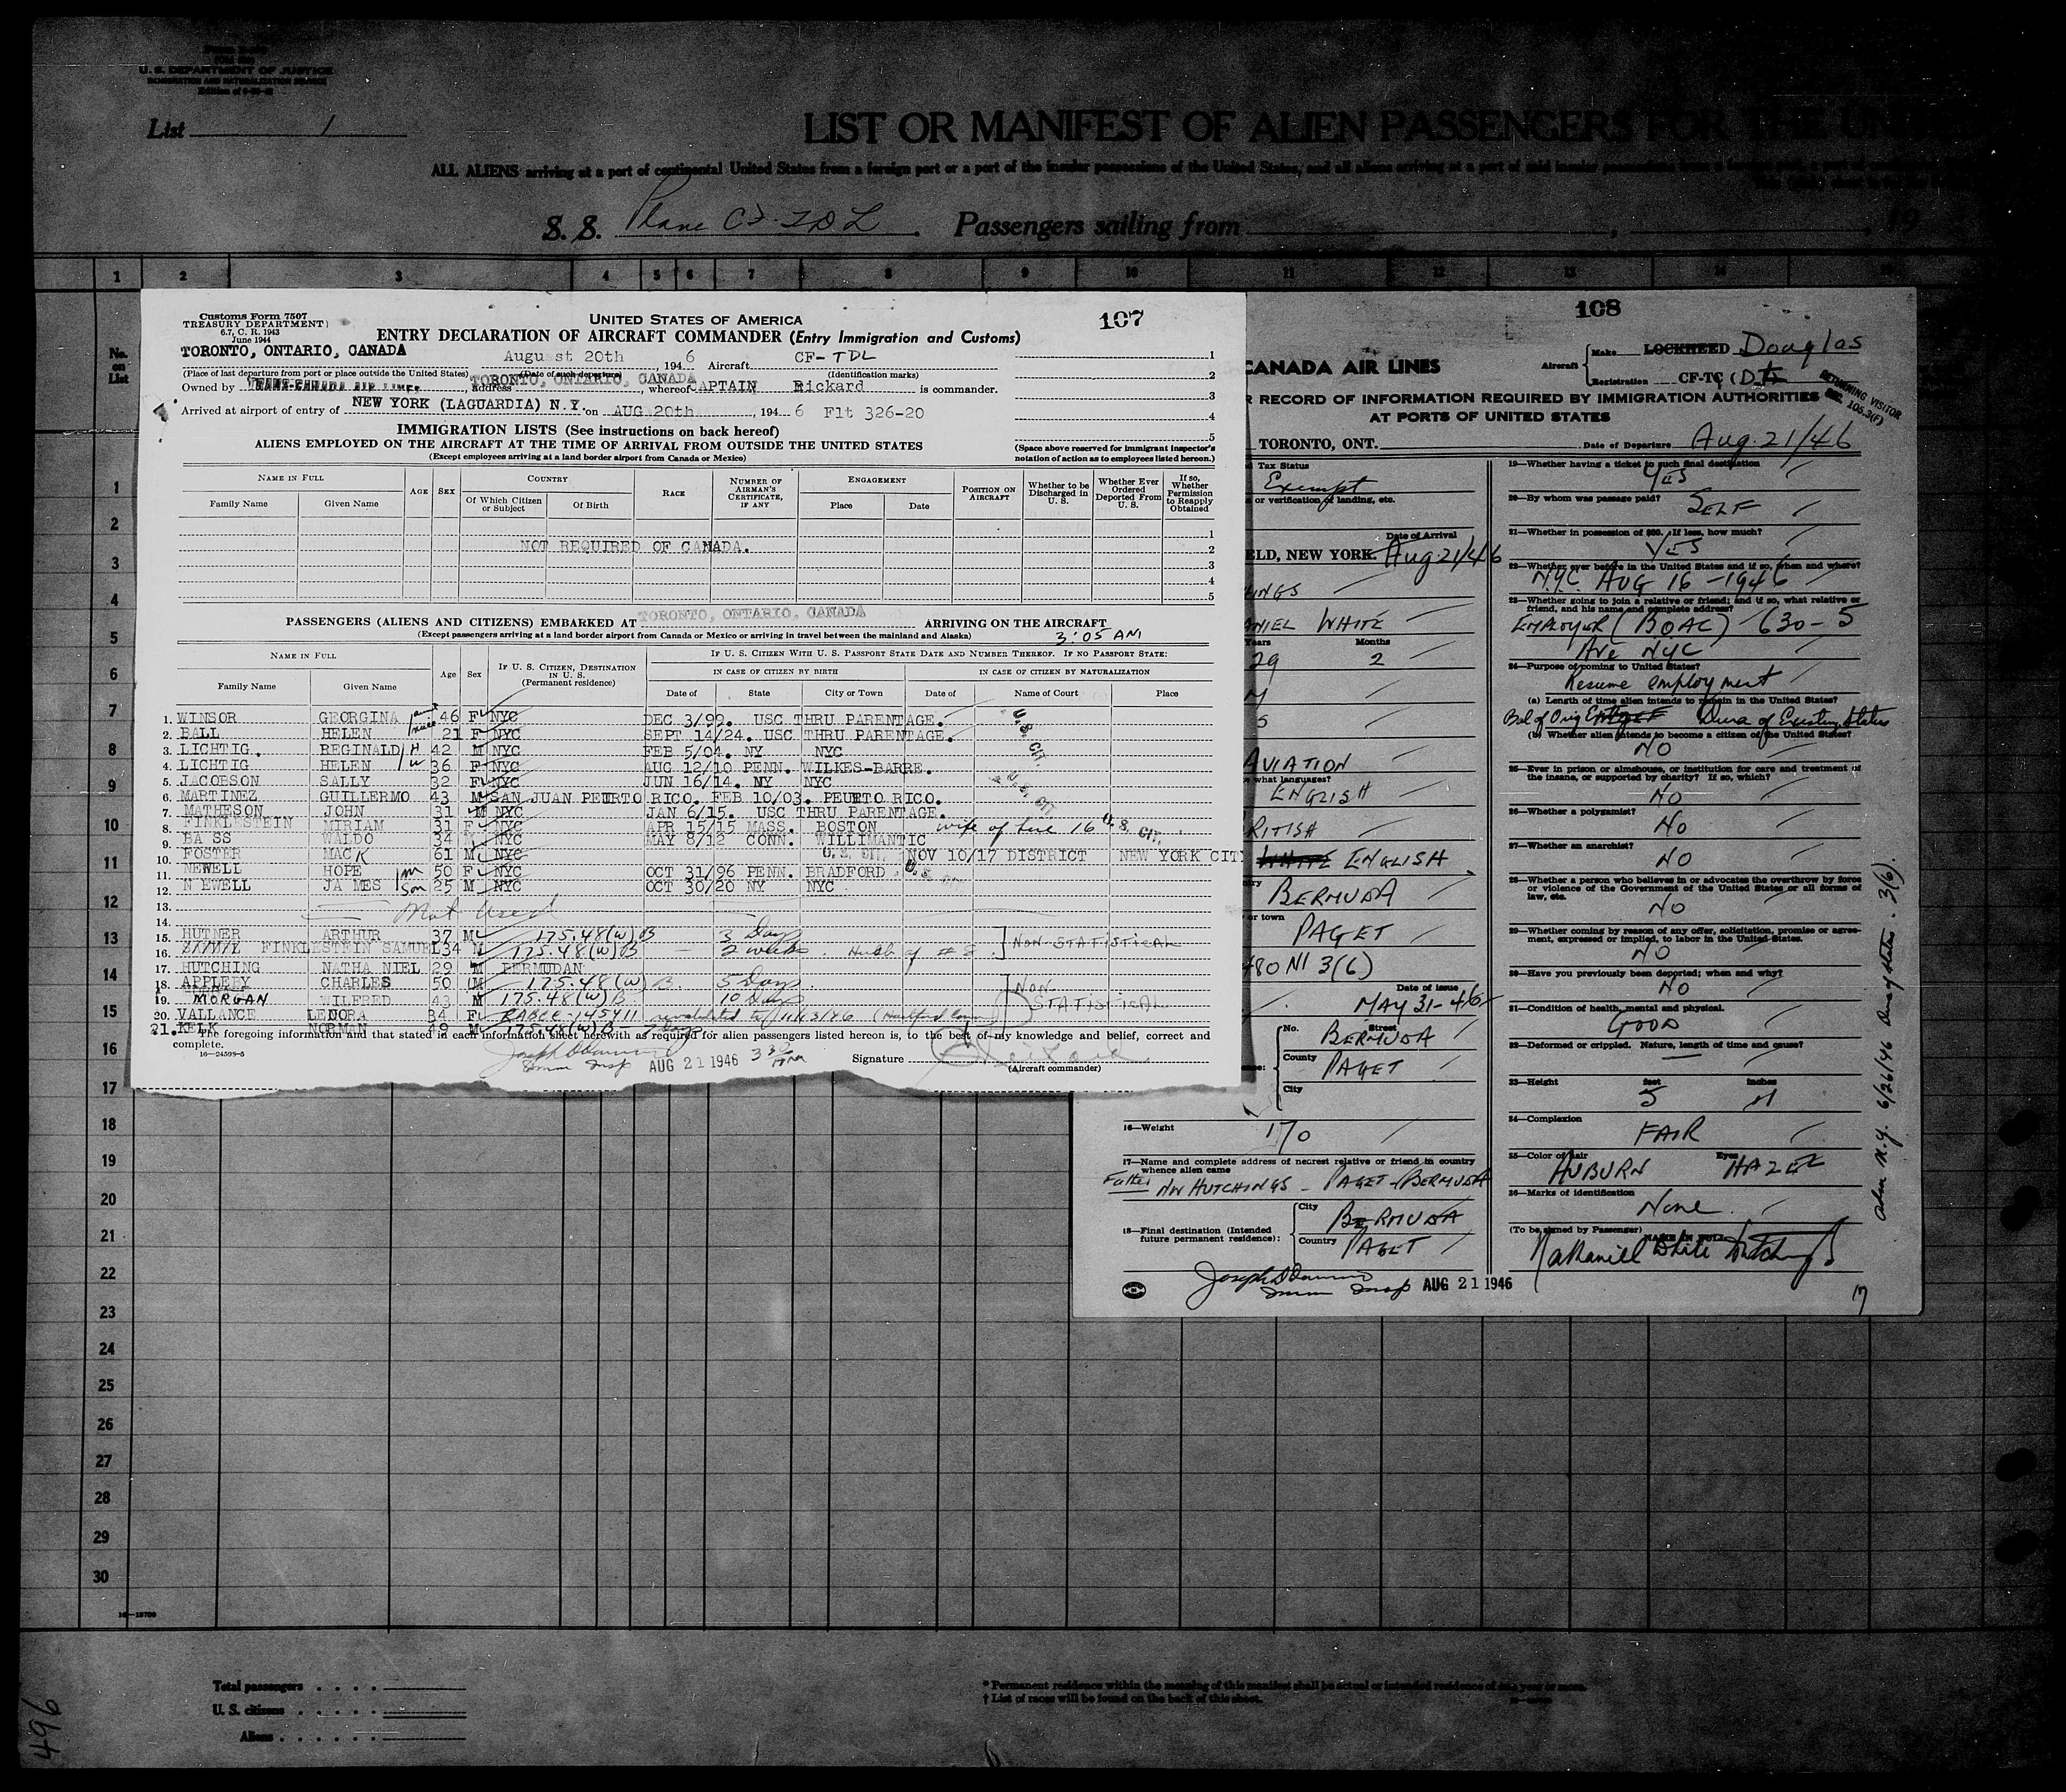 U. S. DEPARTMENT OF JUSTICE
IMMIGRATION AND NATURALIZATION SERVICE
List 1
LIST OR MANIFEST OF ALIEN PASSENGERS FOR THE UN
ALL ALIENS arriving at a port of continental United States from a foreign port or a part of the insular possessions of the United States, and all aliens arriving at a part of said insular possessions
S. S. Plane CF-TDL. Passengers sailing from , 19
1 2 3 4 5 6 7 8 9 10 11 12 13 14 15
No. on List
1
2
3
4
5
6
7
8
9
10
11
12
13
14
15
16
17
18
19
20
21
22
23
24
25
26
27
28
29
30
Customs Form 7507
TREASURY DEPARTMENT
6.7, C. R. 1943
June 1944
UNITED STATES OF AMERICA
107
ENTRY DECLARATION OF AIRCRAFT COMMANDER (Entry Immigration and Customs)
TORONTO, ONTARIO, CANADA August 20th 1946 Aircraft CF-TDL
(Place of last departure from port or place outside the United States) (Date of such departure) (Identification marks)
Owned by TRANS-CANADA AIR LINES. Address TORONTO, ONTARIO, CANADA, whereof CAPTAIN Rickard is commander.
Arrived at airport of entry of NEW YORK (LAGUARDIA) N.Y. on AUG 20th, 1946 Flt 326-20
1
2
3
4
5
(Space above reserved for immigrant inspector's notation of action as to employees listed hereon.)
IMMIGRATION LISTS (See instructions on back hereof)
ALIENS EMPLOYED ON THE AIRCRAFT AT THE TIME OF ARRIVAL FROM OUTSIDE THE UNITED STATES
(Except employees arriving at a land border airport from Canada or Mexico)
NAME IN FULL
Family Name Given Name
AGE SEX
COUNTRY
Of Which Citizen or Subject Of Birth
RACE
NUMBER OF AIRMAN'S CERTIFICATE, IF ANY
ENGAGEMENT
Place Date
POSITION ON AIRCRAFT
Whether to be Discharged in U. S.
Whether Ever Ordered Deported From U. S.
If so, Whether Permission to Reapply Obtained
1
NOT REQUIRED OF CANADA. 2
3
4
5
PASSENGERS (ALIENS AND CITIZENS) EMBARKED AT TORONTO, ONTARIO, CANADA ARRIVING ON THE AIRCRAFT
(Except passengers arriving at a land border airport from Canada or Mexico or arriving in travel between the mainland and Alaska) 3:05 AM
NAME IN FULL
Family Name Given Name
Age Sex
IF U. S. CITIZEN, DESTINATION IN U. S. (Permanent residence)
IF U. S. CITIZEN WITH U. S. PASSPORT STATE DATE AND NUMBER THEREOF. IF NO PASSPORT STATE:
IN CASE OF CITIZEN BY BIRTH IN CASE OF CITIZEN BY NATURALIZATION
Date of State City or Town Date of Name of Court Place
1. WINSOR GEORGINA aunt 46 F NYC DEC 3/99. USC THRU PARENTAGE.
2. BALL HELEN niece 21 F NYC SEPT 14/24. USC THRU PARENTAGE.
3. LICHTIG. REGINALD H 42 M NYC FEB 5/04. NY NYC
4. LICHTIG HELEN W 36 F NYC AUG 12/10 PENN. WILKES-BARRE.
5. JACOBSON SALLY 32 F NYC JUN 16/14. NY NYC
6. MARTINEZ GUILLERMO 43 M SAN JUAN PEURTO RICO. FEB 10/03. PEURTO RICO.
7. MATHESON JOHN 31 M NYC JAN 6/15. USC THRU PARENTAGE.
8. FINKLESTEIN MIRIAM 31 F NYC APR 15/15 MASS. BOSTON wife of line 16 U. S. CIT.
9. BASS WALDO 34 NYC MAY 8/12 CONN. WILLIMANTIC
10. FOSTER MACK 61 M NYC U. S. CIT. NOV 10/17 DISTRICT NEW YORK CITY
11. NEWELL HOPE m 50 F NYC OCT 31/96 PENN. BRADFORD U. S. CIT.
12. NEWELL JAMES Son 25 M NYC OCT 30/20 NY NYC
13. Not Used
14.
15. HUTNER ARTHUR 37 M 175.48(W)B 3 Days NON-STATISTICAL
16. FINKLESTEIN SAMUEL 34 M 175.48(W)B 2 weeks Husb of #8
17. HUTCHING NATHANIEL 29 M BERMUDAN
18. APPLEBY CHARLES 50 M 175.48(W)B. 5 Days.
19. MORGAN WILFRED 43 M 175.48(W)B 10 Days NON STATISTICAL
20. VALLANCE LENORA 34 F 145411 revalidated to 11/13/46
21. KELK NORMAN 49 M 175.48(W)B 7 Days
The foregoing information and that stated in each information sheet herewith as required for alien passengers listed hereon is, to the best of my knowledge and belief, correct and complete.
16—24598-5
Imm Insp AUG 21 1946 Signature
(Aircraft commander)
108
CANADA AIR LINES
Aircraft Make LOCKHEED Douglas
Registration CF-TC
RETURNING VISITOR
R RECORD OF INFORMATION REQUIRED BY IMMIGRATION AUTHORITIES
AT PORTS OF UNITED STATES
TORONTO, ONT. Date of Departure Aug. 21/46
Tax Status
Exempt
or verification of landing, etc.
Date of Arrival
ELD, NEW YORK. Aug. 21/46
INGS
NIEL WHITE
Years Months
29 2
M
S
AVIATION
what languages?
ENGLISH
RITISH
WHITE ENGLISH
BERMUDA
or town
PAGET
480 NI 3(6)
Date of issue
MAY 31-46
No. Street
BERMUDA
County
PAGET
City
16—Weight 170
17—Name and complete address of nearest relative or friend in country whence alien came
Father NW HUTCHINGS - PAGET - BERMUDA
18—Final destination (Intended future permanent residence):
City
BERMUDA
Country
PAGET
Imm Insp AUG 21 1946
19—Whether having a ticket to such final destination
YES
20—By whom was passage paid?
SELF
21—Whether in possession of $50. If less, how much?
YES
22—Whether ever before in the United States and if so, when and where?
N.Y.C. AUG 16-1946
23—Whether going to join a relative or friend; and if so, what relative or friend, and his name and complete address?
EMPLOYER (BOAC) 630-5
Ave NYC
24—Purpose of coming to United States?
Resume employment
(a) Length of time alien intends to remain in the United States?
Bal of Orig Entry Dura of Existing Status
(b) Whether alien intends to become a citizen of the United States?
NO
25—Ever in prison or almshouse, or institution for care and treatment of the insane, or supported by charity? If so, which?
NO
26—Whether a polygamist?
NO
27—Whether an anarchist?
NO
28—Whether a person who believes in or advocates the overthrow by force or violence of the Government of the United States or all forms of law, etc.
NO
29—Whether coming by reason of any offer, solicitation, promise or agreement, expressed or implied, to labor in the United States.
NO
30—Have you previously been deported; when and why?
NO
31—Condition of health, mental and physical.
GOOD
32—Deformed or crippled. Nature, length of time and cause?
33—Height feet inches
5 11
34—Complexion
FAIR
35—Color of hair Eyes
AUBURN HAZEL
36—Marks of identification
None
(To be signed by Passenger) NAME IN FULL
Nathaniel White Hutchings
Adm N.Y. 6/26/46 Dura of status. 3(6).
Total passengers . . . .
U. S. citizens . . . . .
Aliens . . . . . . .
* Permanent residence within the meaning of this manifest shall be actual or intended residence of one year or more.
† List of races will be found on the back of this sheet.
496